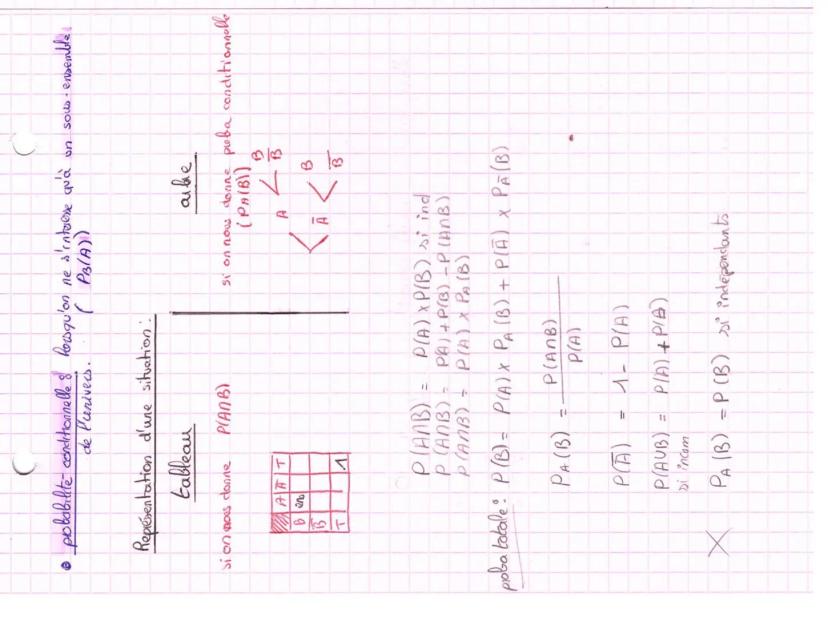 • probabilité conditionnelle : lorsqu'on ne s'intéresse qu'à un sous-ensemble
de l'univers. ( PB(A))
Représentation d'une situation :
tableau
si on nous donne P(A∩B)
A Ā T
B in
B̄
T 1
arbre
si on nous donne proba conditionnelle
(PA(B))
A B
B̄
Ā B
B̄
P(A∩B) = P(A) x P(B) si ind
P(A∩B) = PA) + P(B) - P(A∩B)
P(A∩B) = P(A) x PA(B)
proba totale : P(B) = P(A) x PA(B) + P(Ā) x PĀ(B)
PA(B) = P(A∩B) / P(A)
P(Ā) = 1 - P(A)
P(A∪B) = P(A) + P(B)
si incom
X PA(B) = P(B) si indépendants